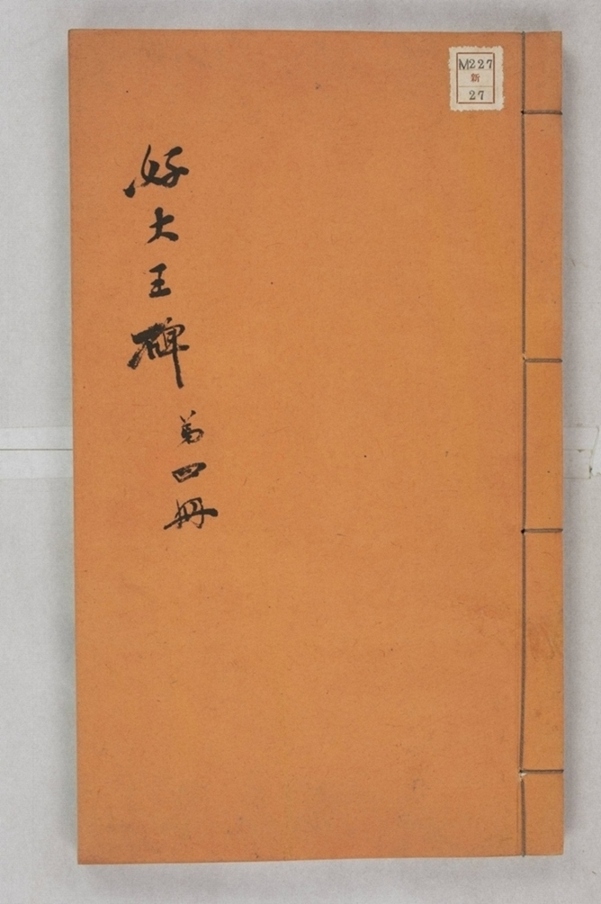 好大王碑
第四冊
M227
新
27